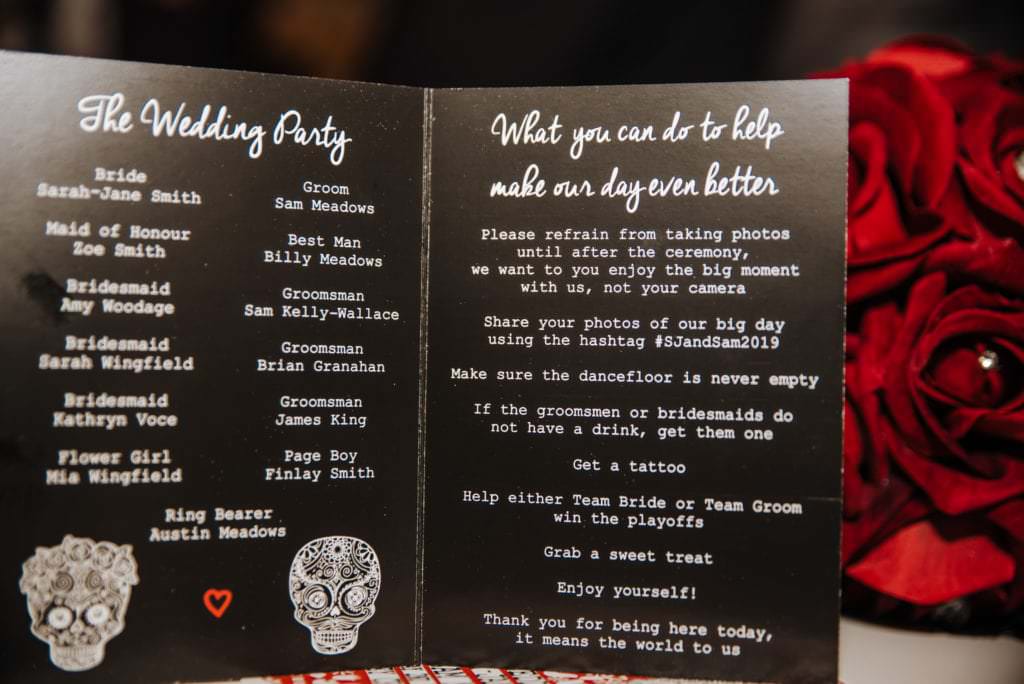 The Wedding Party
Bride
Sarah-Jane Smith
Maid of Honour
Zoe Smith
Bridesmaid
Amy Woodage
Bridesmaid
Sarah Wingfield
Bridesmaid
Kathryn Voce
Flower Girl
Mia Wingfield
Groom
Sam Meadows
Best Man
Billy Meadows
Groomsman
Sam Kelly-Wallace
Groomsman
Brian Granahan
Groomsman
James King
Page Boy
Finlay Smith
Ring Bearer
Austin Meadows
What you can do to help
make our day even better
Please refrain from taking photos
until after the ceremony,
we want to you enjoy the big moment
with us, not your camera
Share your photos of our big day
using the hashtag #SJandSam2019
Make sure the dancefloor is never empty
If the groomsmen or bridesmaids do
not have a drink, get them one
Get a tattoo
Help either Team Bride or Team Groom
win the playoffs
Grab a sweet treat
Enjoy yourself!
Thank you for being here today,
it means the world to us